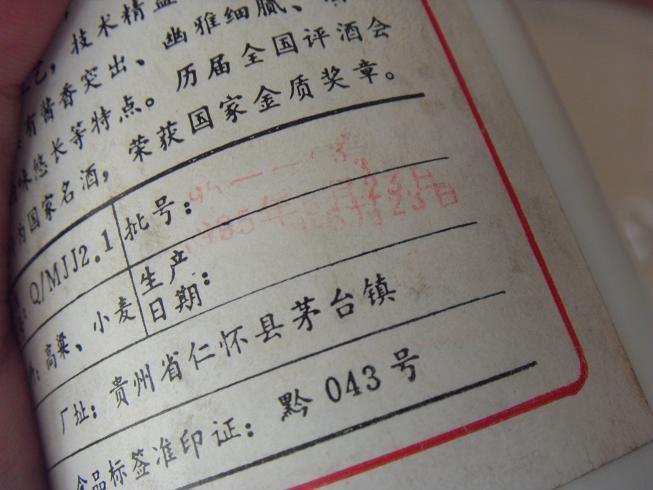 艺，技术精
有酱香突出、幽雅细腻、
味悠长等特点。历届全国评酒会
国家名酒，荣获国家金质奖章。
Q/MJJ2.1 批号：
高粱、小麦 生产日期：
23日
厂址：贵州省仁怀县茅台镇
食品标签准印证：黔 043 号